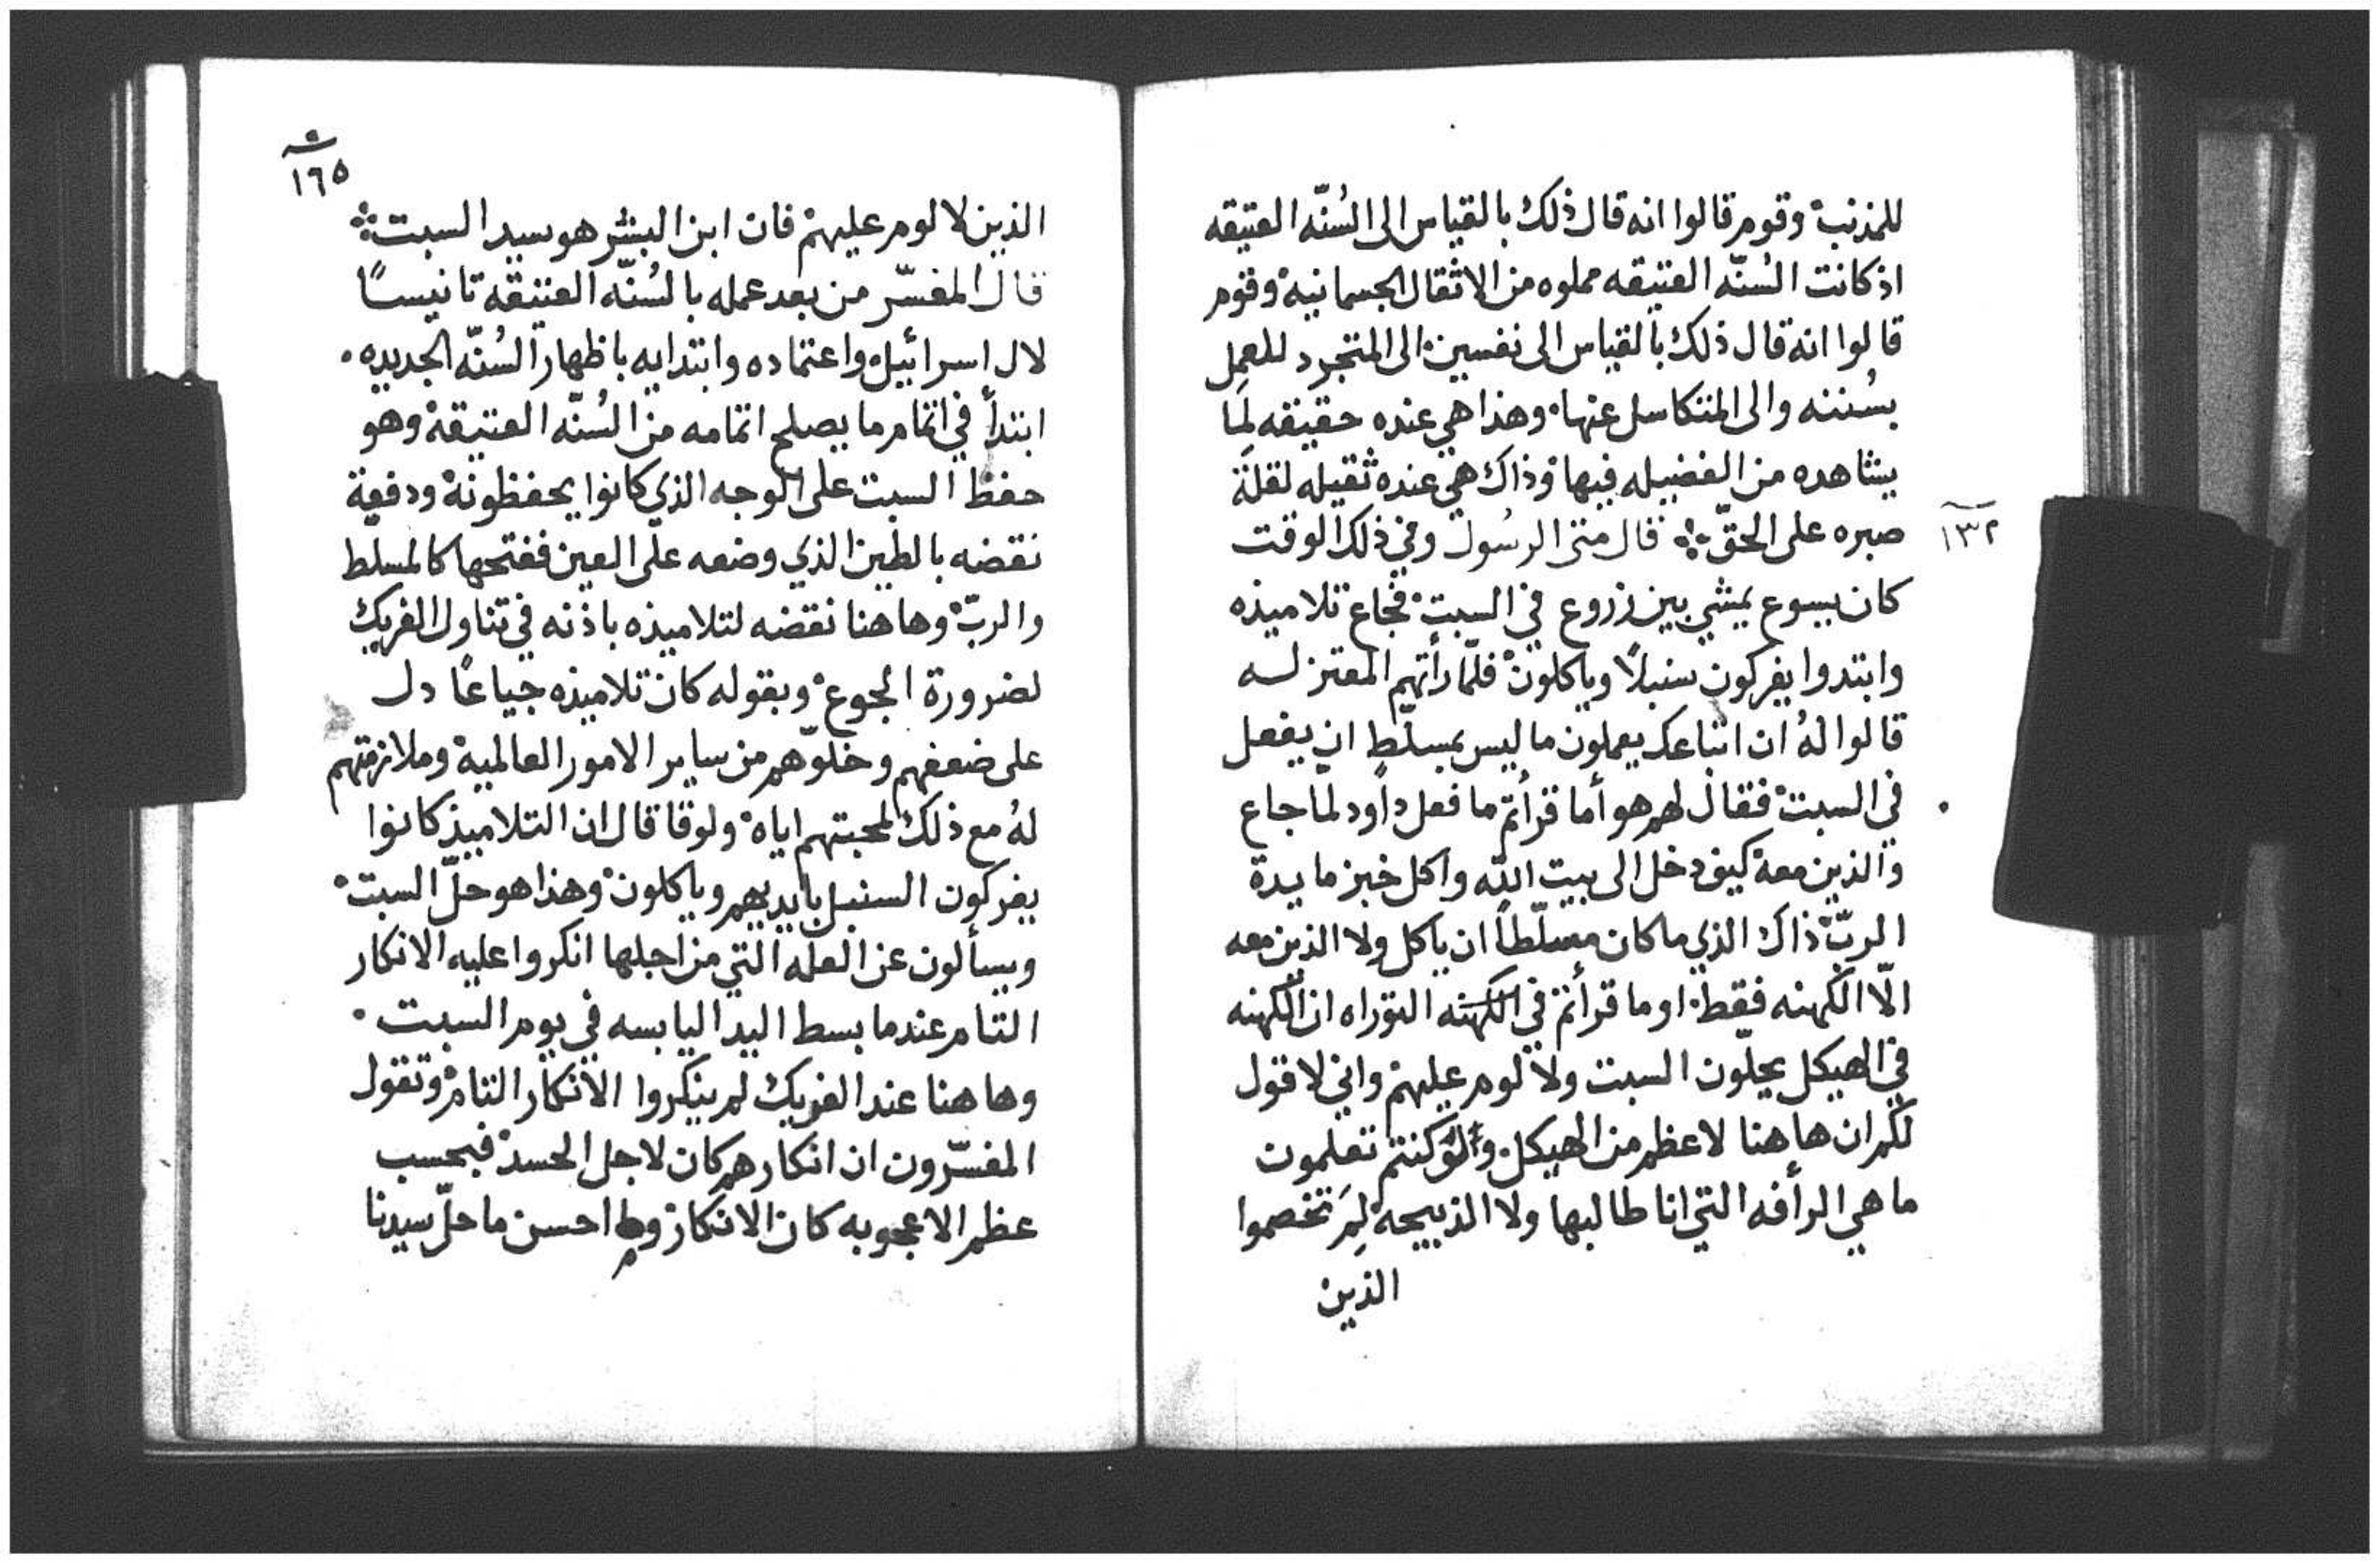 للمذنب وقوم قالوا انه قال ذلك بالقياس الى السُنّه العتيقه
اذ كانت السُنّه العتيقه مملوه من الاثقال الجسمانيه وقوم
قالوا انه قال ذلك بالقياس الى نفسين الى المتجرد للعمل
بسُننه والى المتكاسل عنها وهذا هي عنده حقيقه لِمَا
يشاهده من الفضيله فيها وذاك هي عنده ثقيله لقلة
١٣٢
صبره على الحقّ ܀ قال متى الرسُول وفي ذلك الوقت
كان يسوع يمشي بين زروع في السبت فجاع تلاميذه
وابتدوا يفركون سنبلاً وياكلون فلمّا رأتهم المعتزله
قالوا لهُ ان اتباعك يعملون ما ليس بمسلّطٍ ان يفعل
في السبت فقال لهم هو أما قرأتم ما فعل داود لمّا جاع
والذين معه كيف دخل الى بيت الله واكل خبز مايدة
الربّ ذاك الذي ما كان مسلّطاً ان ياكل ولا الذين معه
الّا الكهنه فقط او ما قرأتم في الكهنه التوراه ان الكهنه
في الهيكل يحلّون السبت ولا لوم عليهم واني لاقول
لكم ان هاهنا لاعظم من الهيكل ولو كنتم تعلمون
ما هي الرأفه التي انا طالبها ولا الذبيحه لِمَ تخصموا
الذين
١٦٥
الذين لا لوم عليهم فان ابن البشر هو سيد السبت ܀
قال المفسّر من بعد عمله بالسُنّه العتيقه تانيسًا
لال اسرائيل واعتماده وابتدايه باظهار السُنّه الجديده ٠
ابتدأ في اتمام ما يصلح اتمامه من السُنّه العتيقه وهو
حفظ السبت على الوجه الذي كانوا يحفظونه ودفعة
نقضه بالطين الذي وضعه على العين ففتحها كالمسلط
والربّ وهاهنا نقضه لتلاميذه باذنه في تناول الفريك
لضرورة الجوع وبقوله كان تلاميذه جياعًا دل
على ضعفهم وخلوّهم من ساير الامور العالميه وملازمتهم
لهُ مع ذلك لمحبتهم اياه ولوقا قال ان التلاميذ كانوا
يفركون السنبل بايديهم وياكلون وهذا هو حلّ السبت
ويسألون عن العله التي من اجلها انكروا عليه الانكار
التام عندما بسط اليد اليابسه في يوم السبت ٠
وهاهنا عند الفريك لم ينكروا الانكار التام وتقول
المفسّرون ان انكارهم كان لاجل الحسد فبحسب
عظم الاعجوبه كان الانكار وما احسن ما حلّ سيدنا